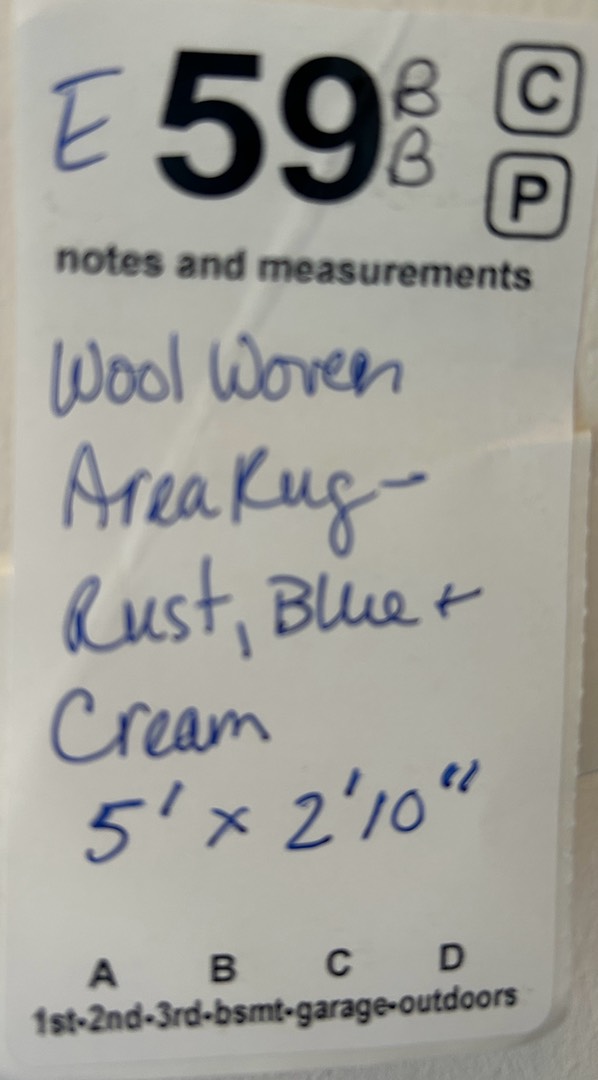 E 59 B B C P
notes and measurements
Wool Woven
Area Rug -
Rust, Blue +
Cream
5' x 2'10"
A B C D
1st-2nd-3rd-bsmt-garage-outdoors